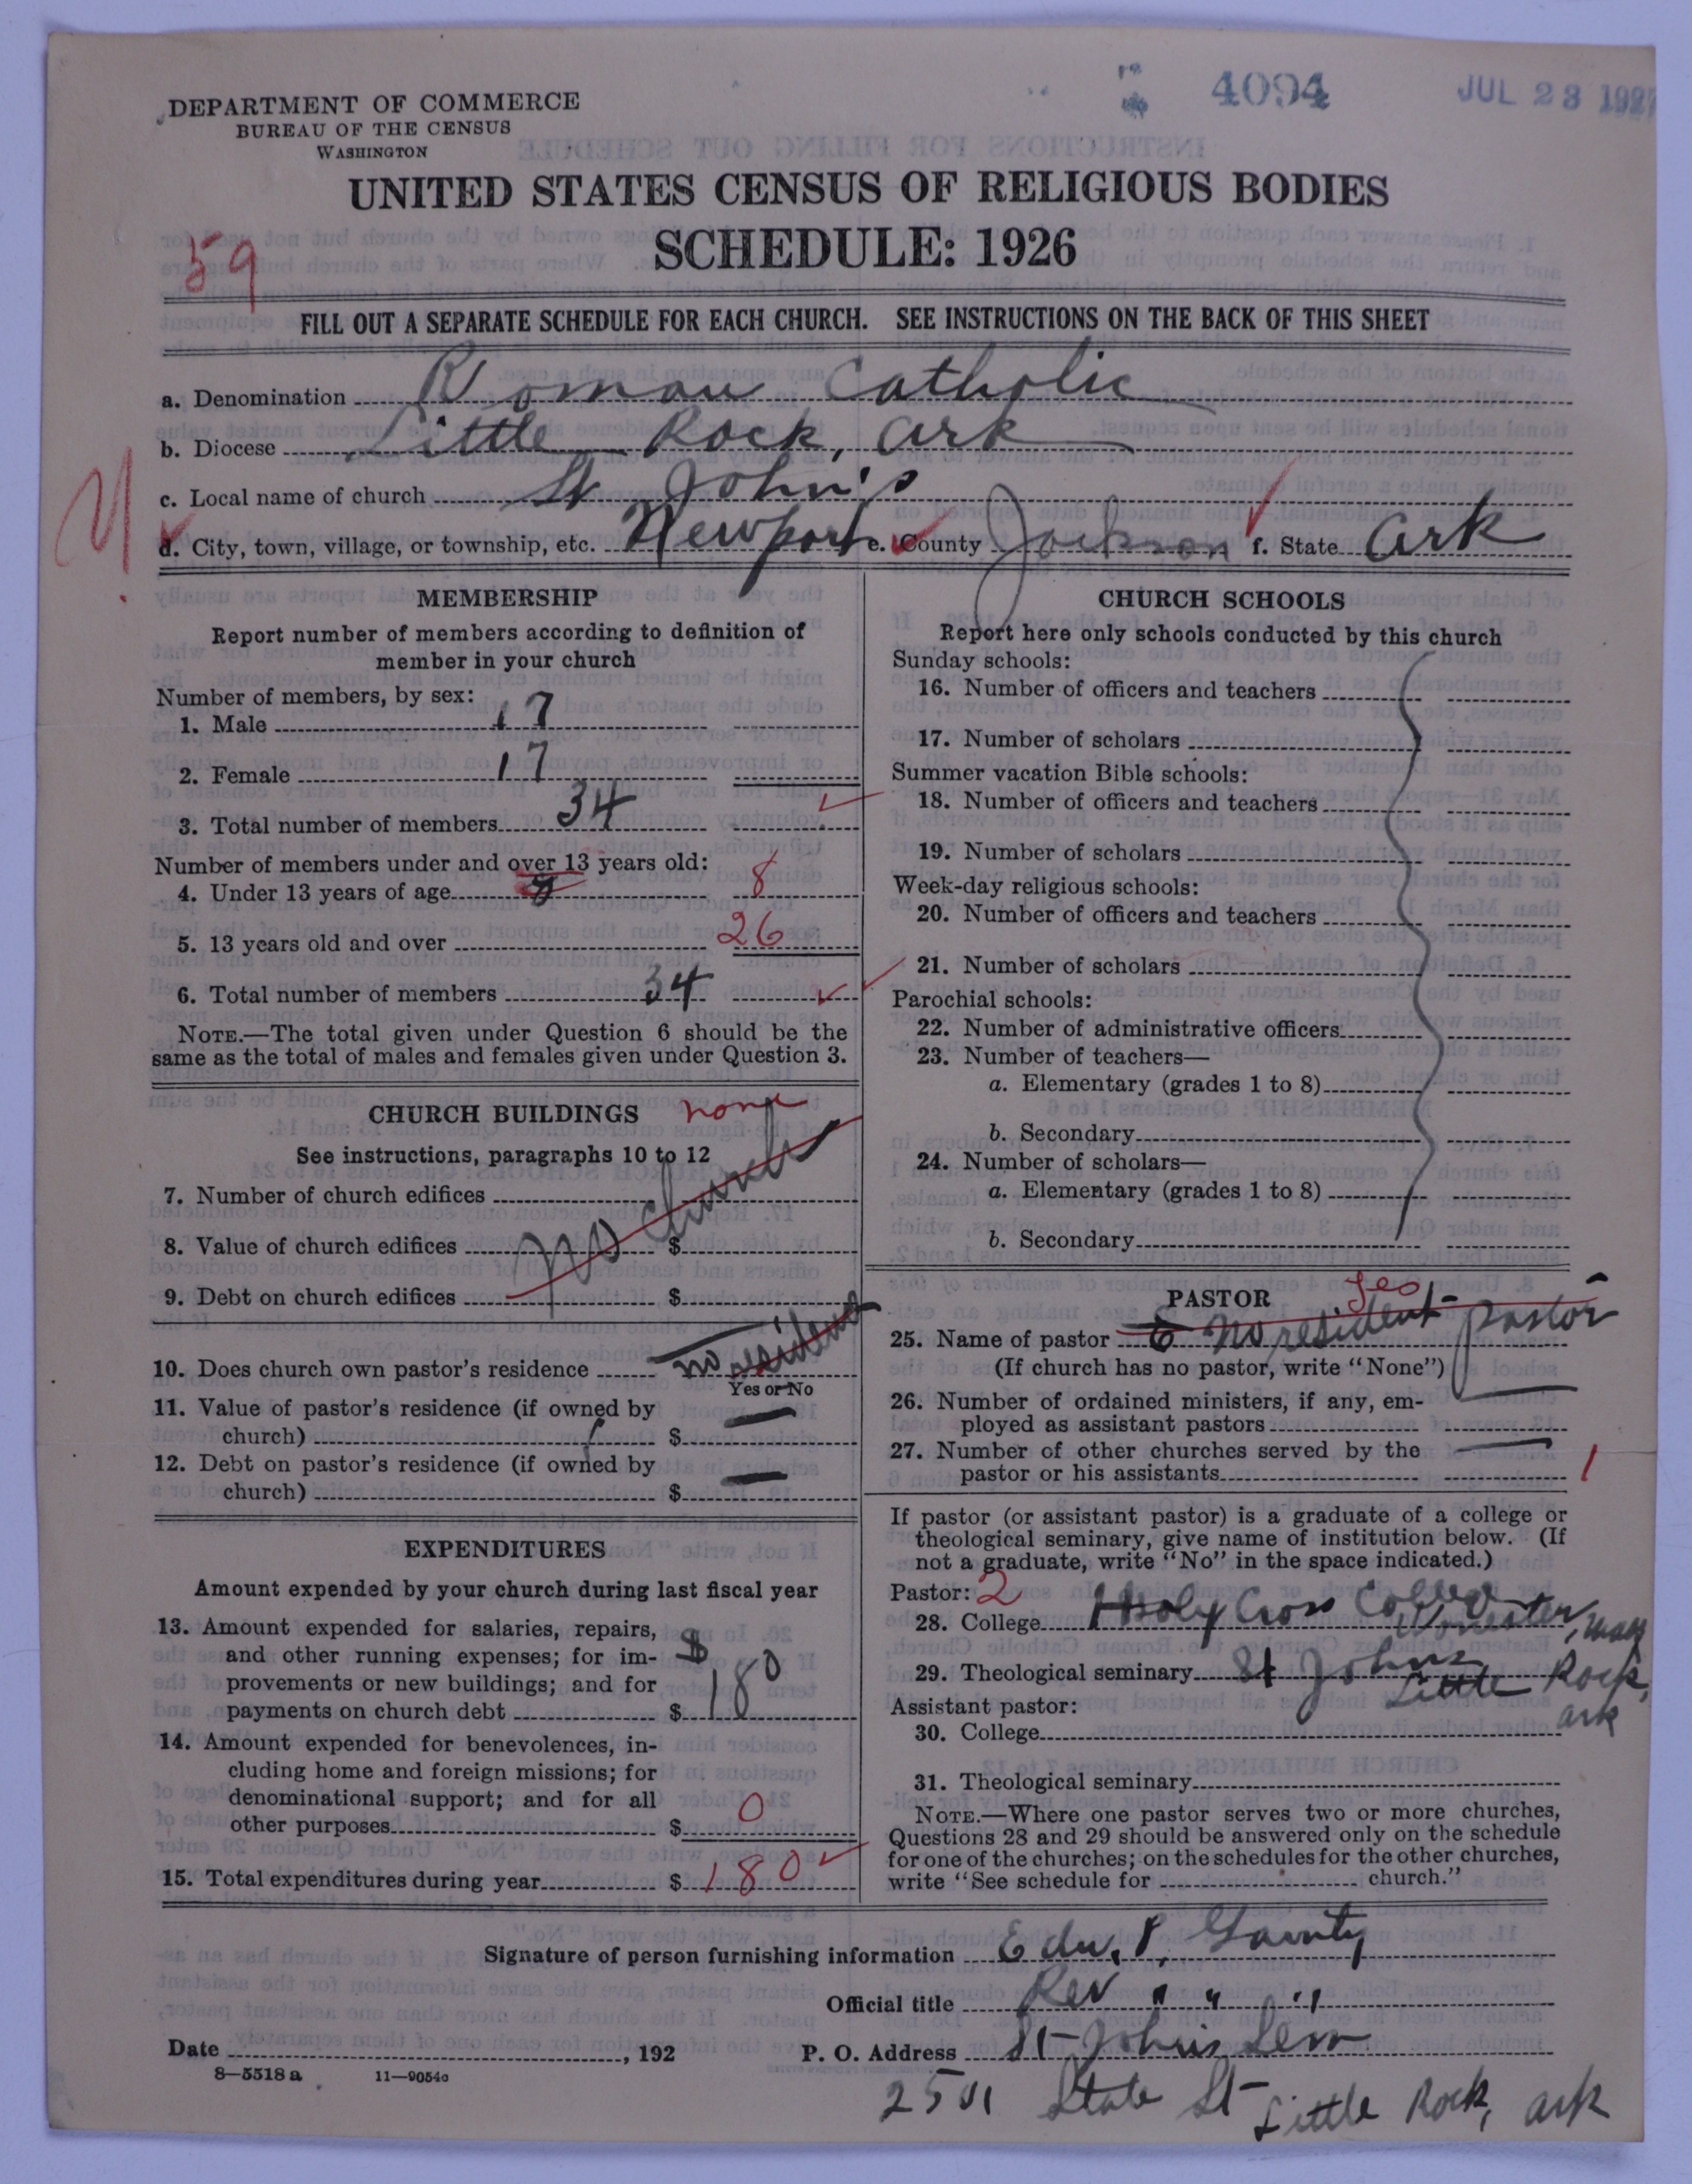 4094 JUL 23 1927
DEPARTMENT OF COMMERCE
BUREAU OF THE CENSUS
WASHINGTON
UNITED STATES CENSUS OF RELIGIOUS BODIES
SCHEDULE: 1926
59
FILL OUT A SEPARATE SCHEDULE FOR EACH CHURCH. SEE INSTRUCTIONS ON THE BACK OF THIS SHEET
a. Denomination Roman Catholic
b. Diocese Little Rock, Ark
c. Local name of church St John's
d. City, town, village, or township, etc. Newport e. County Jackson f. State Ark
MEMBERSHIP
Report number of members according to definition of
member in your church
Number of members, by sex:
1. Male 17
2. Female 17
3. Total number of members 34
Number of members under and over 13 years old:
4. Under 13 years of age 8 8
5. 13 years old and over 26
6. Total number of members 34
NOTE.—The total given under Question 6 should be the
same as the total of males and females given under Question 3.
CHURCH BUILDINGS none
See instructions, paragraphs 10 to 12
7. Number of church edifices
No Church
8. Value of church edifices $
9. Debt on church edifices $
10. Does church own pastor's residence no resident
Yes or No
11. Value of pastor's residence (if owned by
church) $ —
12. Debt on pastor's residence (if owned by
church) $ —
EXPENDITURES
Amount expended by your church during last fiscal year
13. Amount expended for salaries, repairs,
and other running expenses; for im-
provements or new buildings; and for
payments on church debt $ $180
14. Amount expended for benevolences, in-
cluding home and foreign missions; for
denominational support; and for all
other purposes $ 0
15. Total expenditures during year $ 180
CHURCH SCHOOLS
Report here only schools conducted by this church
Sunday schools:
16. Number of officers and teachers
17. Number of scholars
Summer vacation Bible schools:
18. Number of officers and teachers
19. Number of scholars
Week-day religious schools:
20. Number of officers and teachers
21. Number of scholars
Parochial schools:
22. Number of administrative officers
23. Number of teachers—
a. Elementary (grades 1 to 8)
b. Secondary
24. Number of scholars—
a. Elementary (grades 1 to 8)
b. Secondary
PASTOR
25. Name of pastor No resident pastor
(If church has no pastor, write "None")
26. Number of ordained ministers, if any, em-
ployed as assistant pastors
27. Number of other churches served by the
pastor or his assistants — 1
If pastor (or assistant pastor) is a graduate of a college or
theological seminary, give name of institution below. (If
not a graduate, write "No" in the space indicated.)
Pastor: 2
28. College Holy Cross College
Worcester, Mass
29. Theological seminary St Johns
Little Rock,
Ark
Assistant pastor:
30. College
31. Theological seminary
NOTE.—Where one pastor serves two or more churches,
Questions 28 and 29 should be answered only on the schedule
for one of the churches; on the schedules for the other churches,
write "See schedule for church."
Signature of person furnishing information Edw. P. Garrity
Official title Rev " " "
Date , 192 P. O. Address St John's Sem
8—5518 a 11—9054o
2501 State St Little Rock, Ark